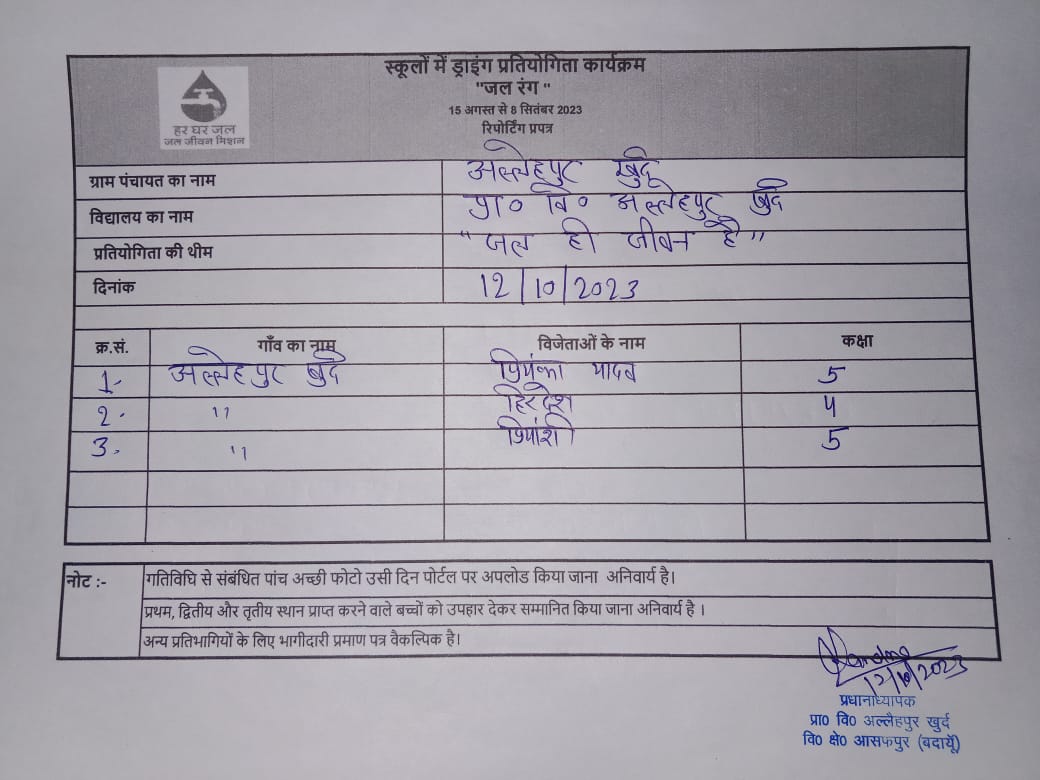 स्कूलों में ड्राइंग प्रतियोगिता कार्यक्रम
"जल रंग "
15 अगस्त से 8 सितंबर 2023
रिपोर्टिंग प्रपत्र
हर घर जल
जल जीवन मिशन
ग्राम पंचायत का नाम अल्लेहपुर खुर्द
विद्यालय का नाम प्रा० वि० अल्लेहपुर खुर्द
प्रतियोगिता की थीम "जल ही जीवन है"
दिनांक 12/10/2023
क्र.सं. गाँव का नाम विजेताओं के नाम कक्षा
1- अल्लेहपुर खुर्द प्रियंका यादव 5
2- " हिरदेश 4
3- " प्रियांशी 5
नोट :- गतिविधि से संबंधित पांच अच्छी फोटो उसी दिन पोर्टल पर अपलोड किया जाना अनिवार्य है।
प्रथम, द्वितीय और तृतीय स्थान प्राप्त करने वाले बच्चों को उपहार देकर सम्मानित किया जाना अनिवार्य है ।
अन्य प्रतिभागियों के लिए भागीदारी प्रमाण पत्र वैकल्पिक है।
12/10/2023
प्रधानाध्यापक
प्रा0 वि0 अल्लैहपुर खुर्द
वि0 क्षे0 आसफपुर (बदायूँ)